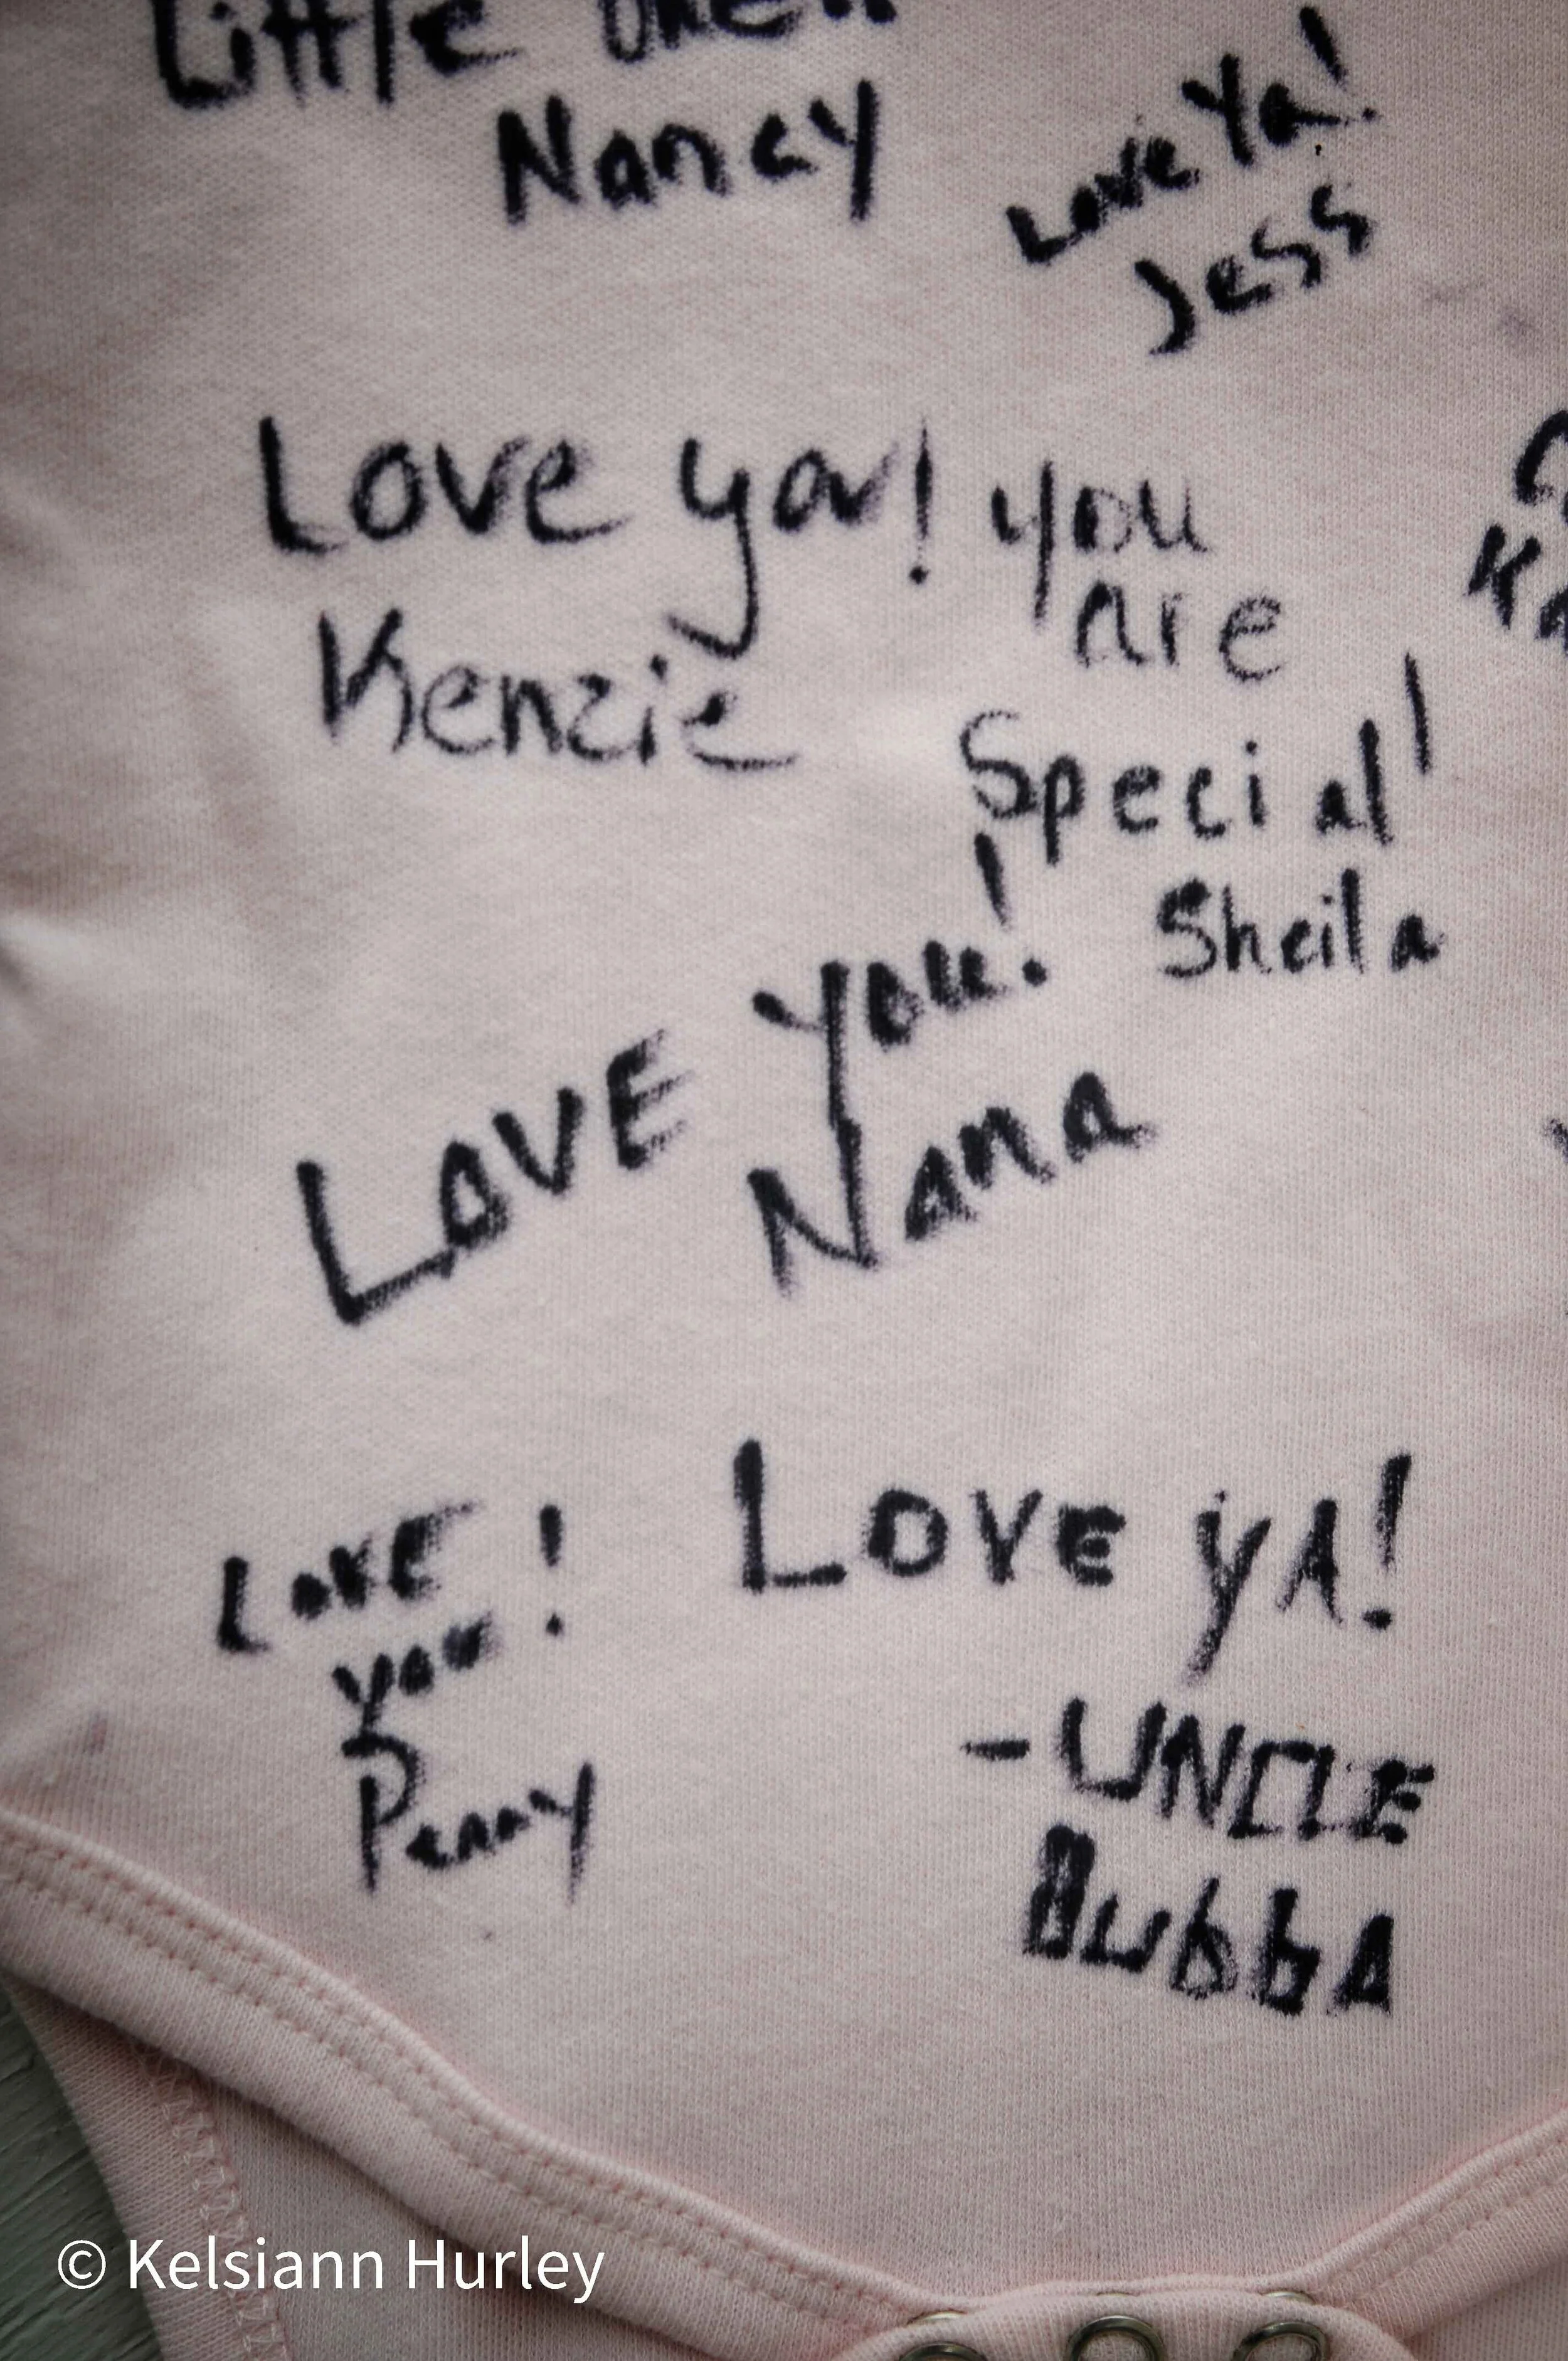 Little One!!
Nancy
Love Ya!
Jess
Love ya!
Kenzie
you
are
Special!
Sheila
LOVE You!
Nana
LOVE
you!
Penny
LOVE YA!
-UNCLE
BubbA
© Kelsiann Hurley